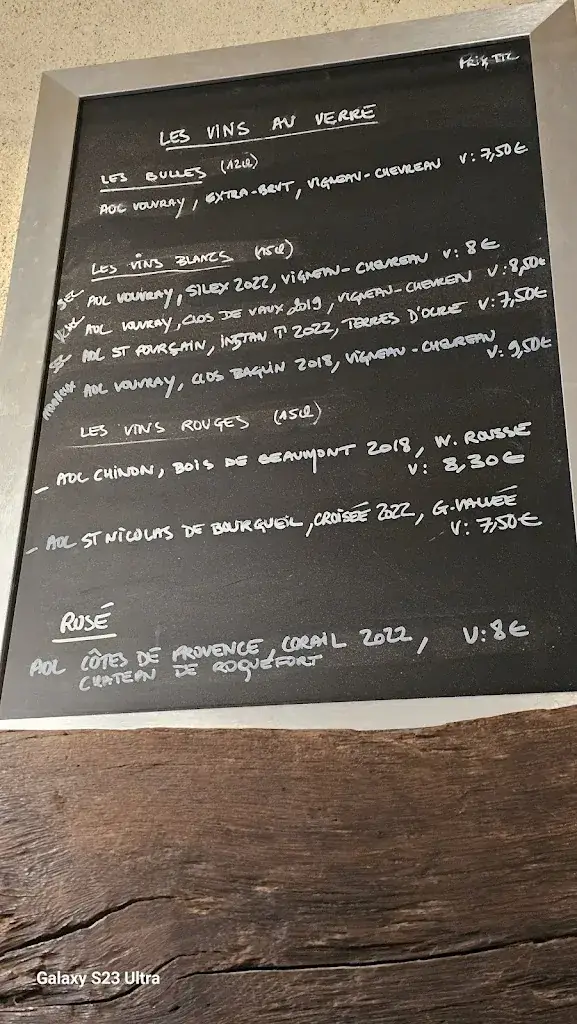 PRIX TTC
LES VINS AU VERRE
LES BULLES (12cl)
AOC VOUVRAY, EXTRA-BRUT, VIGNEAU-CHEVREAU V: 7,50€
LES VINS BLANCS (15cl)
SEC AOC VOUVRAY, SILEX 2022, VIGNEAU-CHEVREAU V: 8€
AOC VOUVRAY, CLOS DE VAUX 2019, VIGNEAU-CHEVREAU V: 8,50€
AOC ST POURÇAIN, INSTAN T 2022, TERRES D'OCRE V: 7,50€
MOELLEUX AOC VOUVRAY, CLOS BAGLIN 2018, VIGNEAU-CHEVREAU
V: 9,50€
LES VINS ROUGES (15cl)
- AOC CHINON, BOIS DE BEAUMONT 2018, W. ROUSSE
V: 8,30€
- AOC ST NICOLAS DE BOURGUEIL, CROISÉE 2022, G. VALLÉE
V: 7,50€
ROSÉ
AOC CÔTES DE PROVENCE, CORAIL 2022, V: 8€
CHATEAU DE ROQUEFORT
Galaxy S23 Ultra